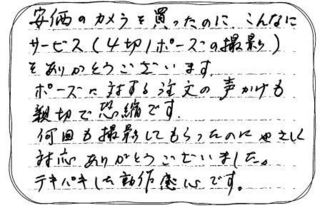 安価のカメラを買ったのに、こんなに
サービス(4切1ポーズの撮影)
をありがとうございます。
ポーズに対する注文の声かけも
親切で恐縮です。
何回も撮影してもらったのにやさしく
対応ありがとうございました。
テキパキした動作感心です。